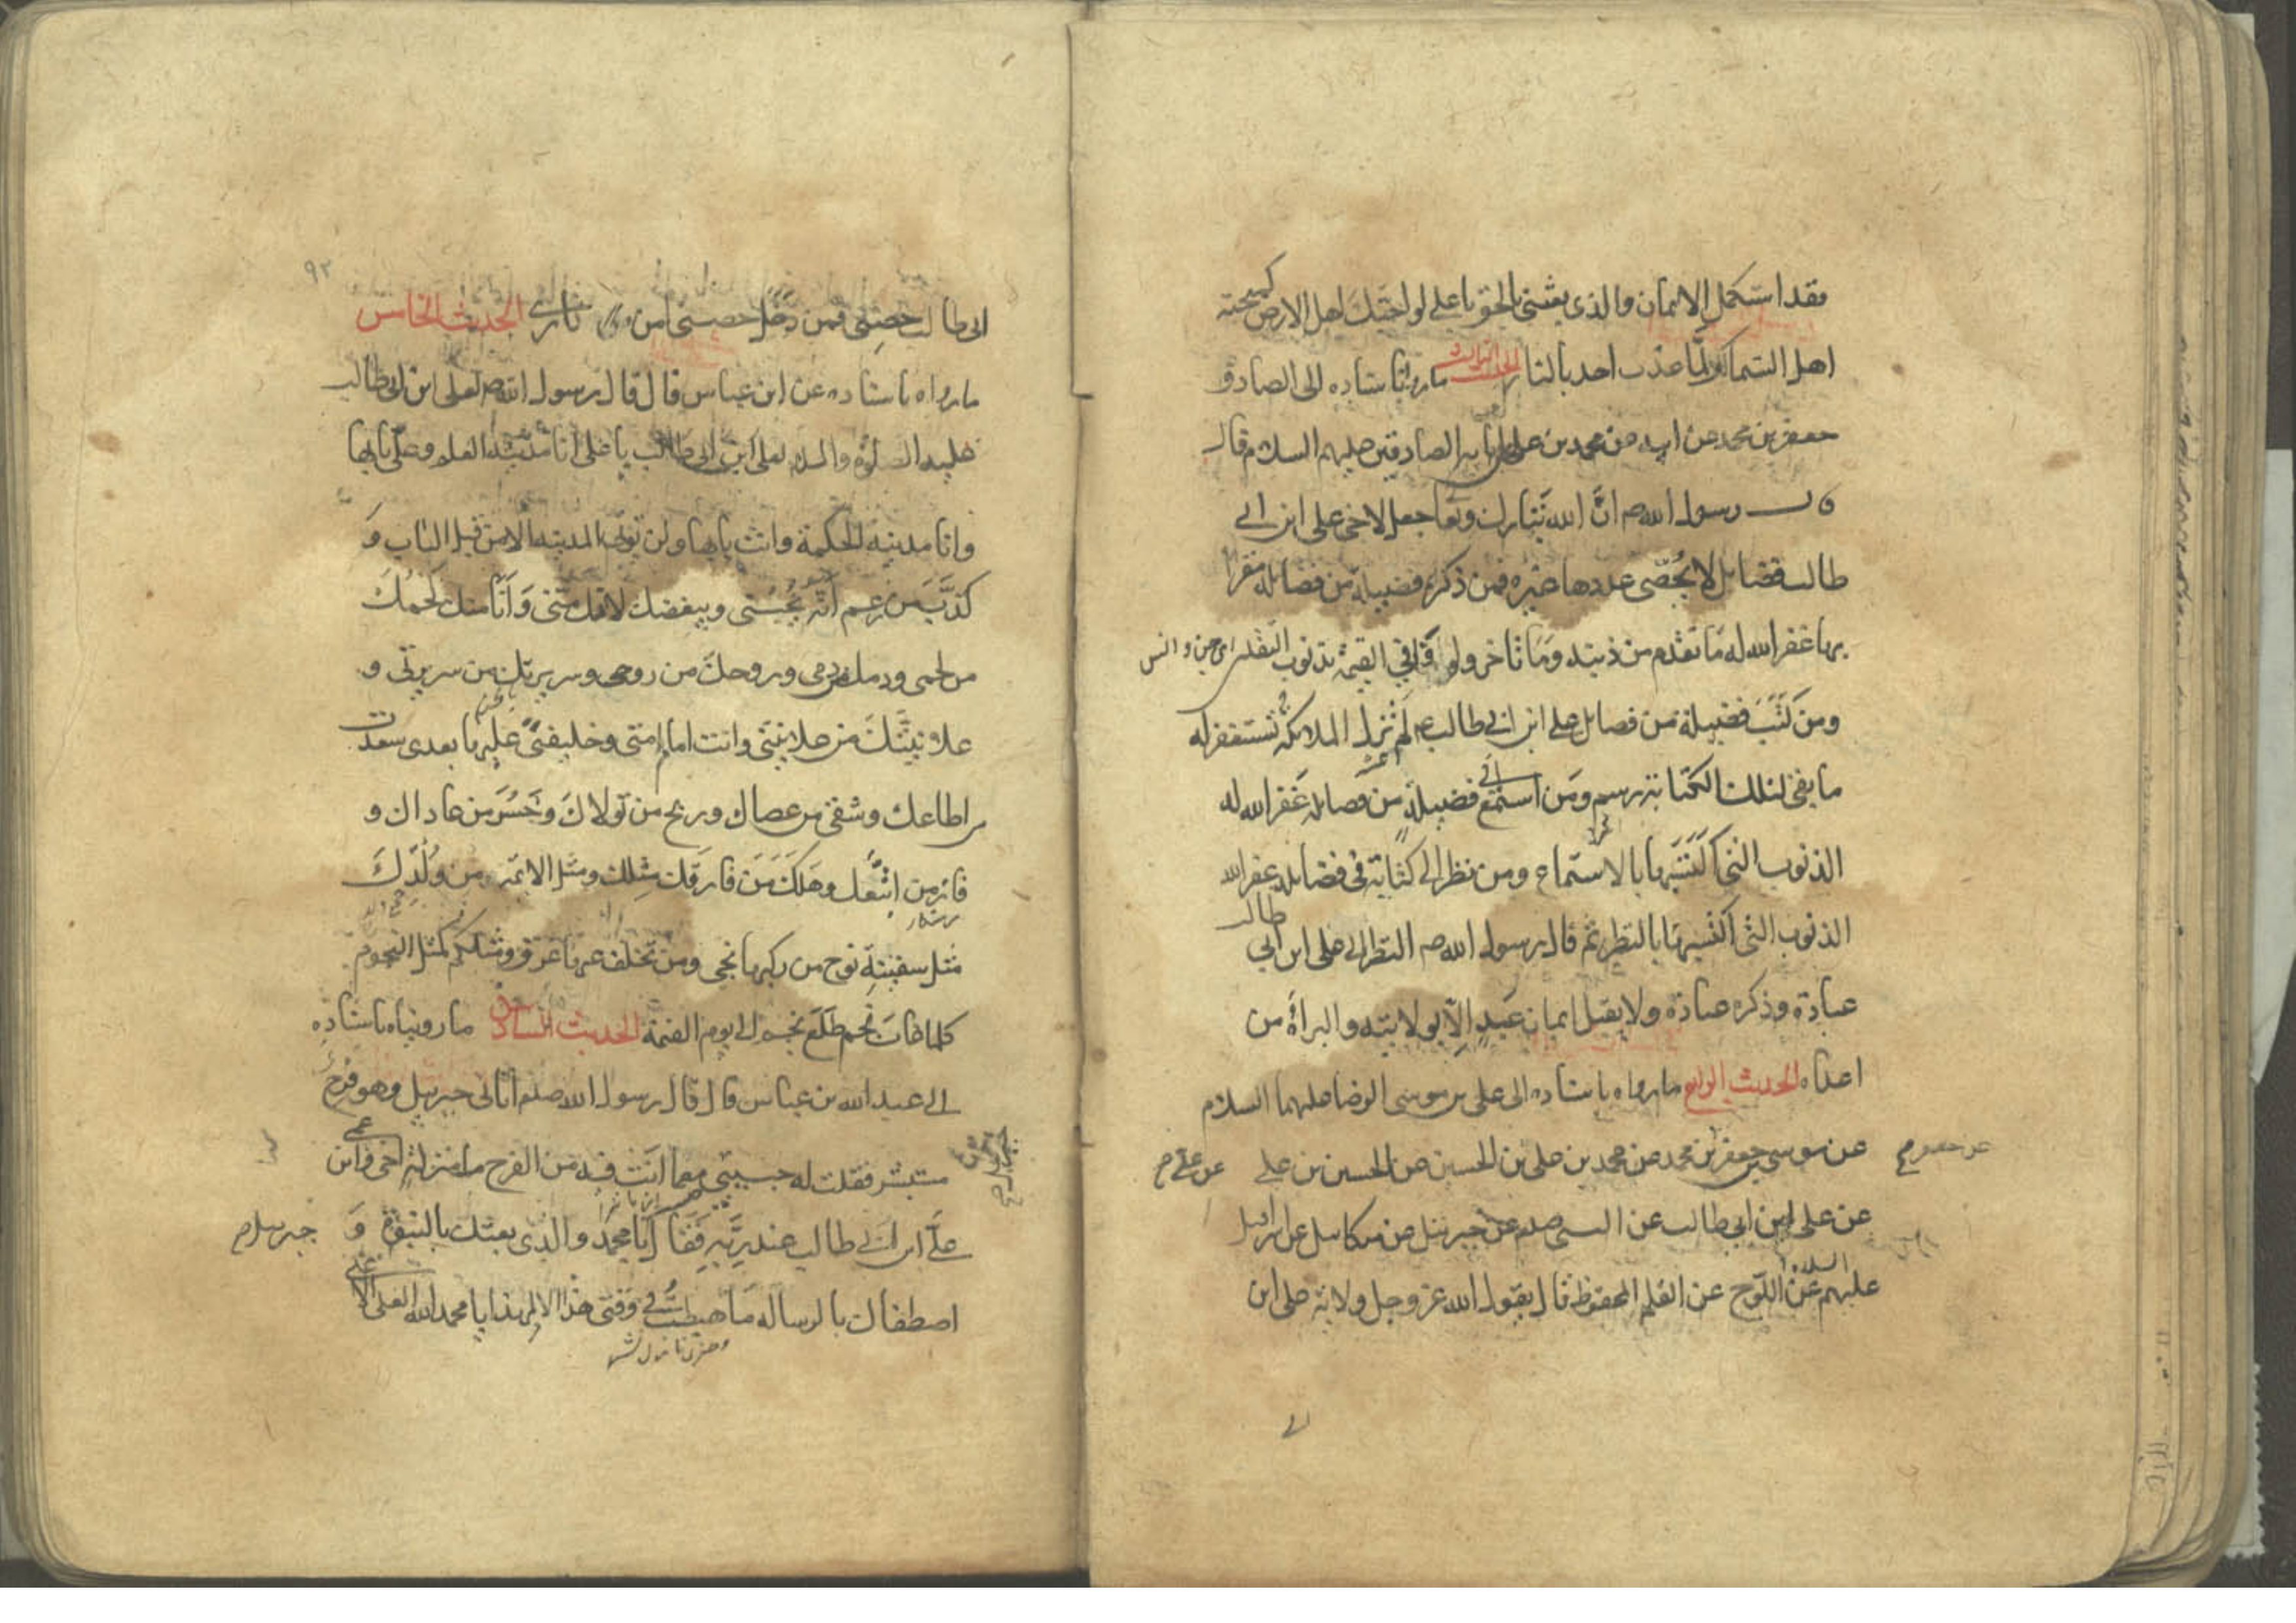 فقد استكمل الايمان والذى بعثنى بالحق يا على لو احبك اهل الارض كمحبة
اهل السماء لك لما عذب احد بالنار الحديث الثالث ما رواه باسناده الى الصادق
جعفر بن محمد عن ابيه عن محمد بن على عن ابائه الصادقين عليهم السلام قال
قال رسول الله ص انّ الله تبارك وتعا جعل لاخى على ابن ابى
طالب فضايل لا يحصى عددها غيره فمن ذكر فضيلة من فضايله مقرا
بها غفر الله له ما تقدم من ذنبه وما تاخر ولو وافى القيمة بذنوب الثقلين اى جن و انس
ومن كتب فضيلة من فضايل على ابن ابى طالب ع لم تزل الملائكة تستغفر له
ما بقى لتلك الكتابة رسم ومن استمع الى فضيلة من فضايله غفر الله له
الذنوب التى اكتسبها بالاستماع ومن نظر الى كتابة فى فضايله غفر الله
الذنوب التى اكتسبها بالنظر ثم قال رسول الله ص النظر الى على ابن ابى طالب
عبادة وذكره عبادة ولا يقبل ايمان عبد الا بولايته والبراة من
اعداه الحديث الرابع ما رواه باسناده الى على بن موسى الرضا عليهما السلام
عن موسى بن جعفر بن محمد عن محمد بن على بن الحسين عن الحسين بن على
عن على ابن ابى طالب عن النبى صلم عن جبرئيل عن ميكائيل عن اسرافيل
عليهم السلام عن اللوح عن القلم المحفوظ قال يقول الله عز وجل ولاية على ابن
الى
٩٢
ابى طالب حصنى فمن دخل حصنى امن من نارى الحديث الخامس
ما رواه باسناده عن ابن عباس قال قال رسول الله ص لعلى ابن ابى طالب
عليه الصلوة والسلام لعلى ابن ابى طالب يا على انا مدينة العلم وعلى بابها
وانا مدينة الحكمة وانت بابها ولن توتى المدينة الا من قبل الباب و
كذب من زعم انه يحبنى ويبغضك لانك منى وانا منك لحمك
من لحمى ودمك من دمى وروحك من روحى وسريرتك من سريرتى و
علانيتك من علانيتى وانت امام امتى وخليفتى عليها بعدى سعد
من اطاعك وشقى من عصاك وربح من تولاك وخسر من عاداك و
فاز من اتبعك وهلك من فارقك مثلك ومثل الائمه من ولدك
مثل سفينة نوح من ركبها نجى ومن تخلف عنها غرق ومثلكم كمثل النجوم
كلما غاب نجم طلع نجم الى يوم القيمة الحديث السادس ما رويناه باسناده
الى عبد الله بن عباس قال قال رسول الله صلم اتانى جبرييل وهو فرح
مستبشر فقلت له حبيبى مع ما انت فيه من الفرح ما منزلة اخى وابن عمى
على ابن ابى طالب عند ربه فقال يا محمد والذى بعثك بالنبوة و
اصطفاك بالرساله ما هبطت فى وقتى هذا الا لهذا يا محمد الله العلى الاعلى